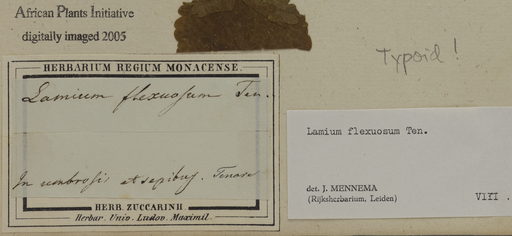 African Plants Initiative
digitally imaged 2005
Typoid!
HERBARIUM REGIUM MONACENSE.
Lamium flexuosum Ten.
In umbrosis et sepibus. Tenore
HERB. ZUCCARINII
Herbar. Univ. Ludov. Maximil.
Lamium flexuosum Ten.
det. J. MENNEMA
(Rijksherbarium, Leiden)
VIII.